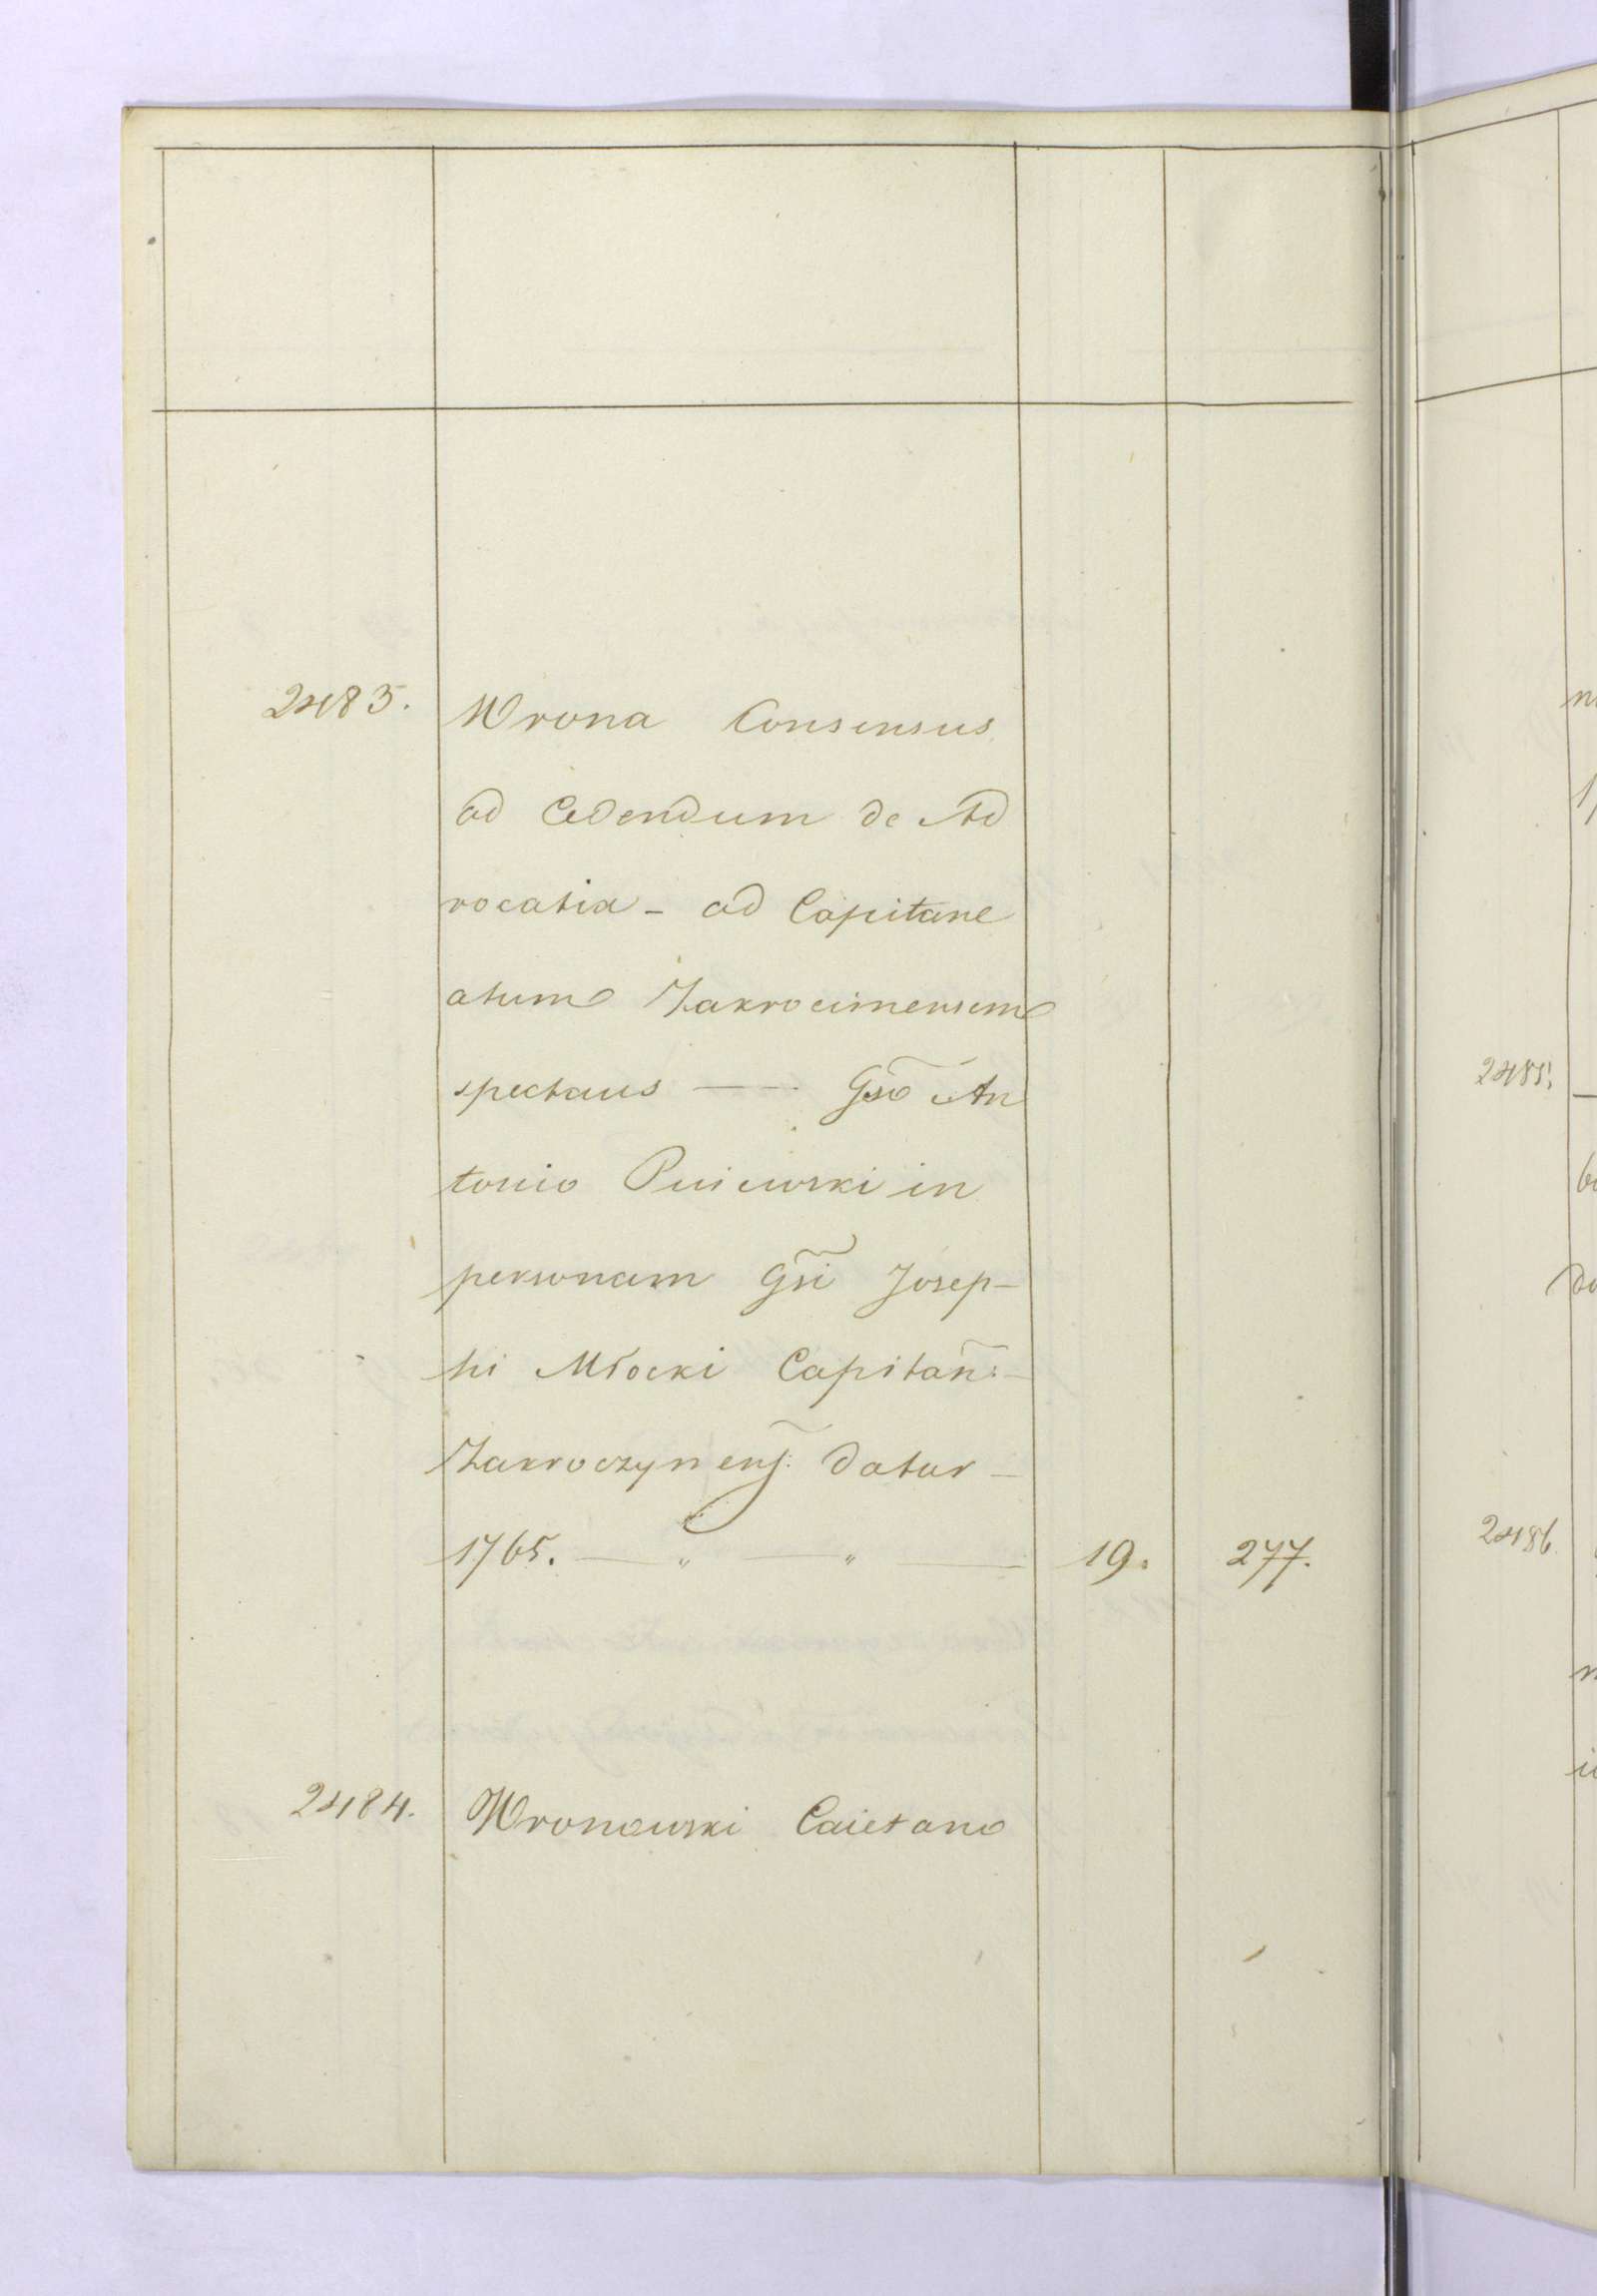 2483. Wrona Consensus
ad Cedendum de Ad
vocatia - ad Capitane
atum Zakrocimensem
spectans — Gso An
tonio Puiewski in
personam Gsi Josep-
hi Młocki Capitan:
Zakroczynens: datur -
1765. — " — " — 19. 277.
2484. Wronowski Caietano
2485.
2486